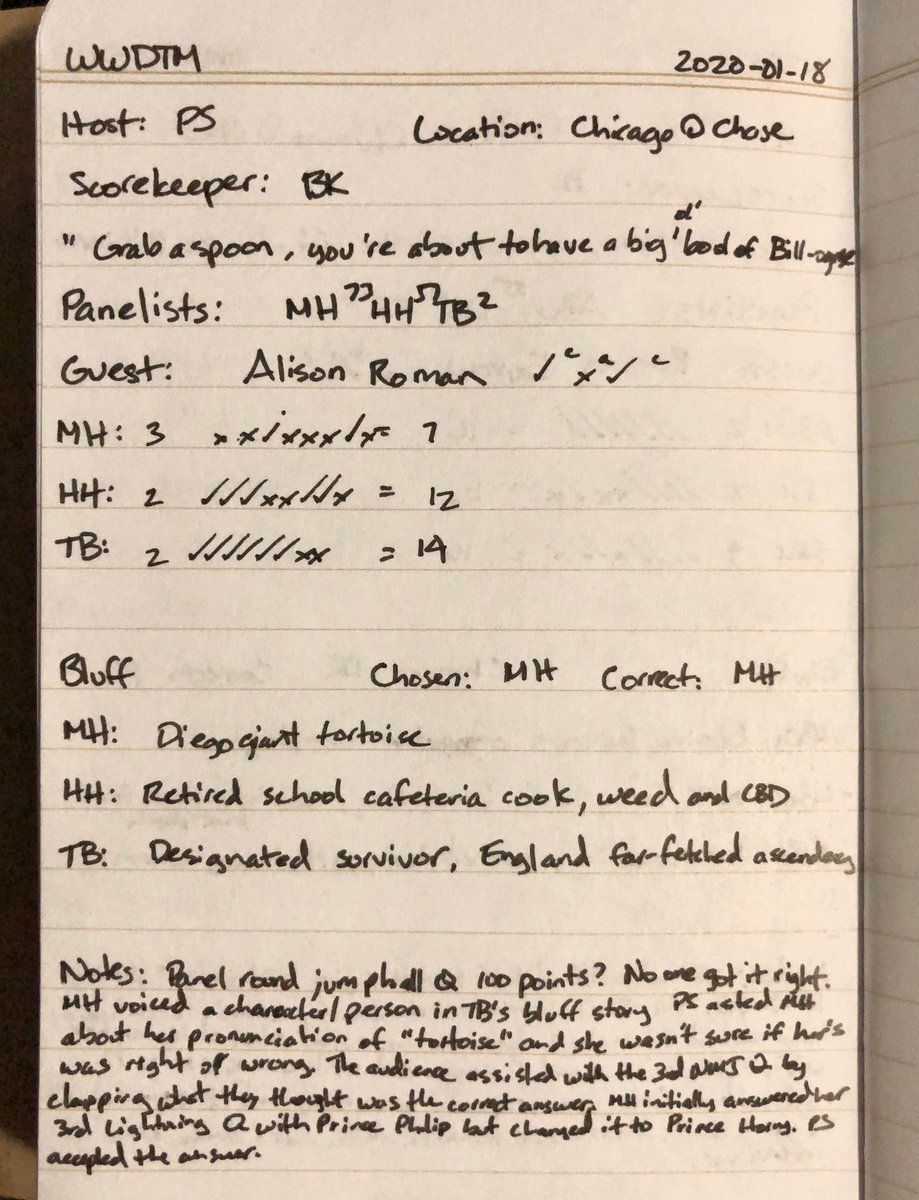 WWDTM 2020-01-18
Host: PS Location: Chicago @ Chase
Scorekeeper: BK
" Grab a spoon, you're about to have a big ol' bod of Bill-
Panelists: MH 73 HH 57 TB 2
Guest: Alison Roman ✓ c x a ✓ c
MH: 3 x x ✓ x x x ✓ x = 7
HH: 2 ✓✓✓xx✓✓x = 12
TB: 2 ✓✓✓✓✓✓xx = 14
Bluff Chosen: MH Correct: MH
MH: Diego giant tortoise
HH: Retired school cafeteria cook, weed and CBD
TB: Designated survivor, England far-fetched ascendency
Notes: Panel round jump ball Q 100 points? No one got it right.
MH voiced a character/person in TB's bluff story PS asked MH
about her pronunciation of "tortoise" and she wasn't sure if her's
was right of wrong. The audience assisted with the 3rd NMJ Q by
clapping what they thought was the correct answer. MH initially answered her
3rd Lightning Q with Prince Philip but changed it to Prince Harry. PS
accepted the answer.